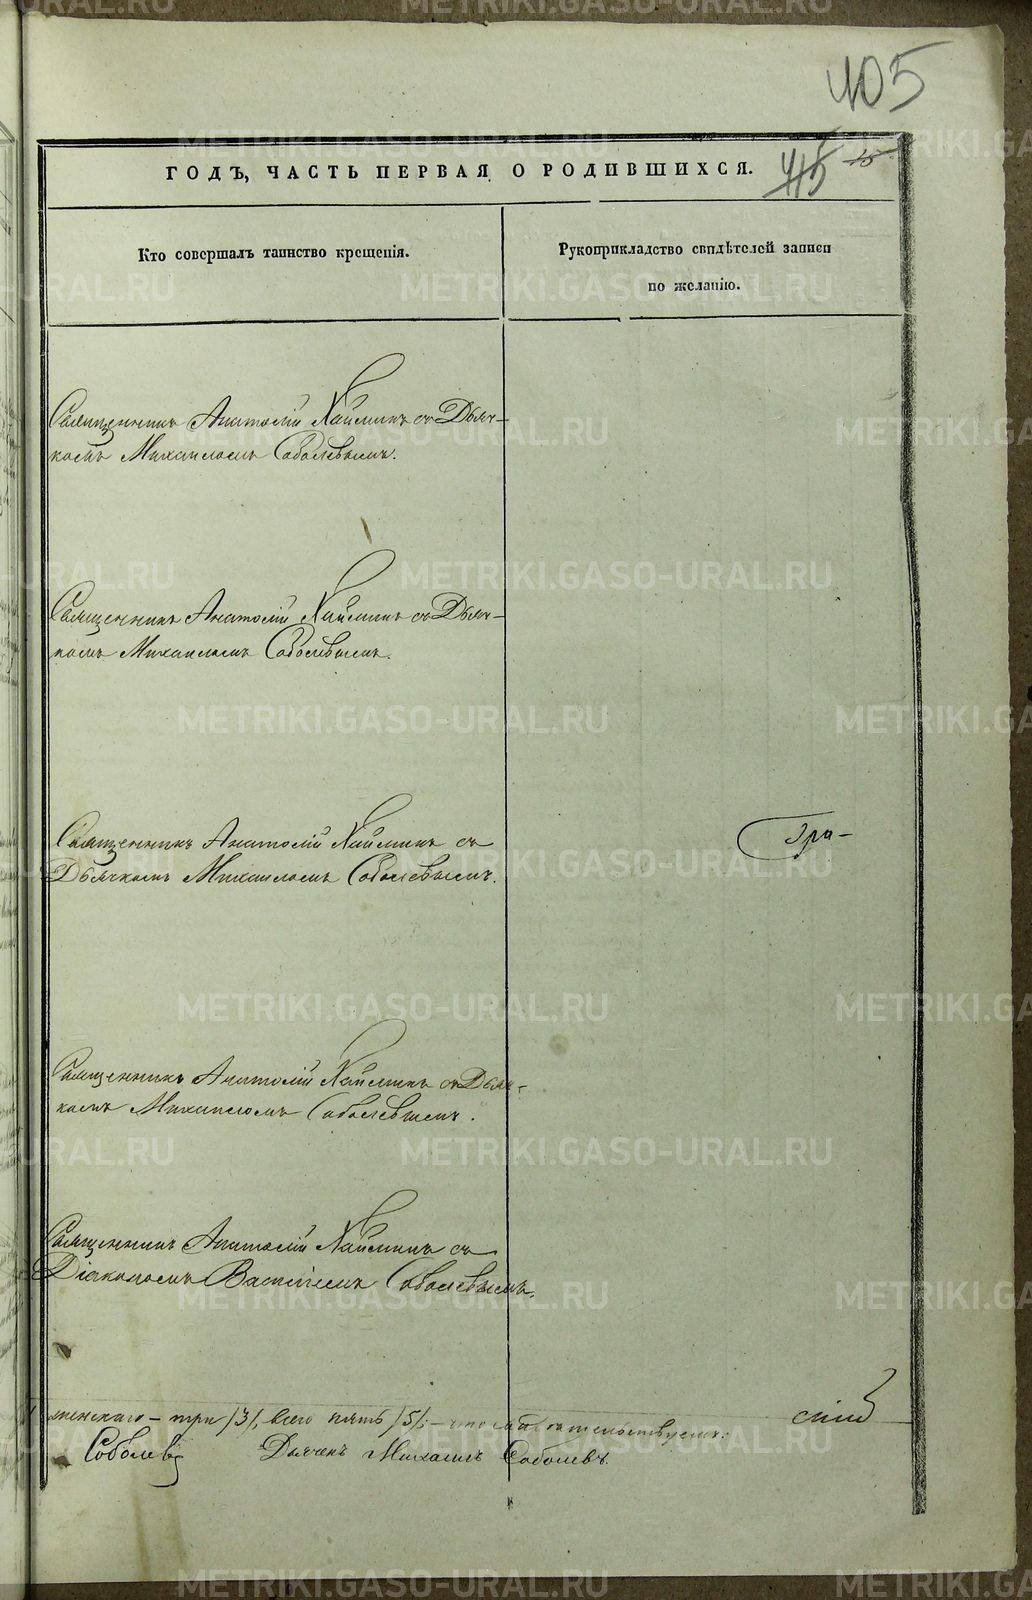 405
ГОДЪ, ЧАСТЬ ПЕРВАЯ О РОДИВШИХСЯ.
415 15
Кто совершалъ таинство крещенія.
Рукоприкладство свидѣтелей записи
по желанію.
Священникъ Анатолій Найминъ съ Дьяч-
комъ Михаиломъ Соболевымъ.
Священникъ Анатолій Найминъ съ Дьяч-
комъ Михаиломъ Соболевымъ.
Священникъ Анатолій Найминъ съ
Дьячкомъ Михаиломъ Соболевымъ.
Гри-
Священникъ Анатолій Найминъ съ Дьяч-
комъ Михаиломъ Соболевымъ.
Священникъ Анатолій Найминъ съ
Діакономъ Василіемъ Соболевымъ.
женскаго – три /3/, всего пять /5/; – что свидѣтельствуемъ:
Соболевъ Дьячекъ Михаилъ Соболевъ.
METRIKI.GASO-URAL.RU